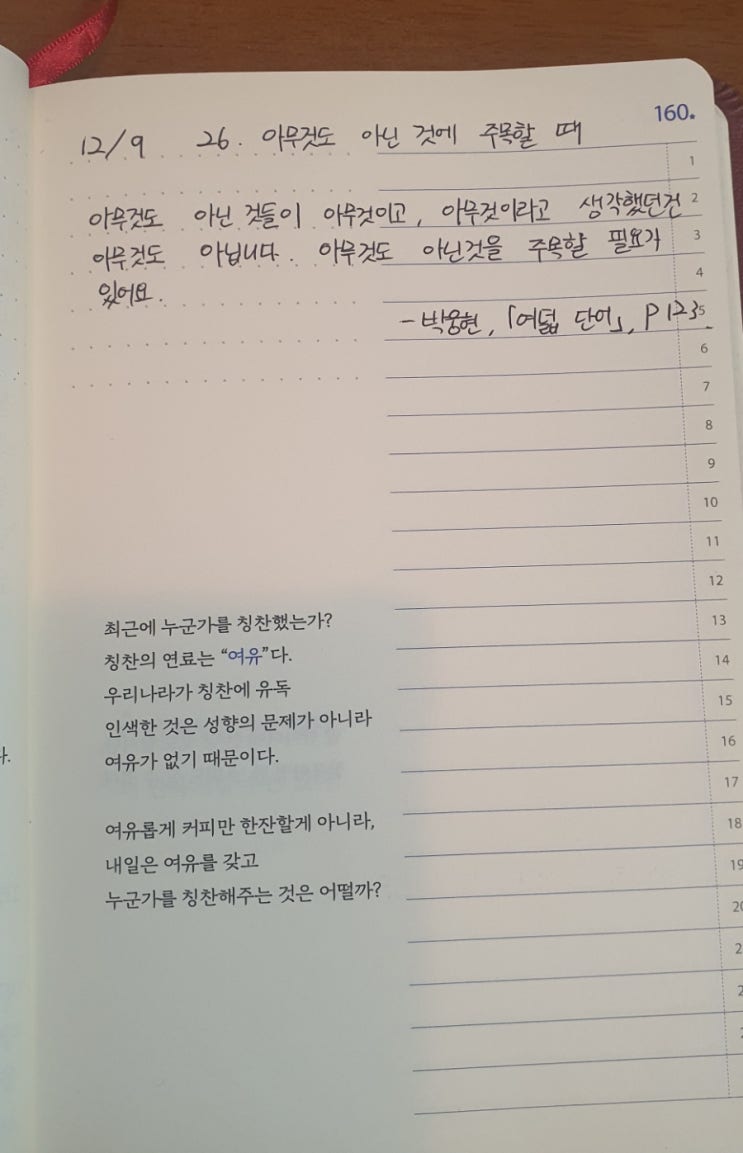 160.
12/9 26. 아무것도 아닌 것에 주목할 때
1
아무것도 아닌 것들이 아무것이고, 아무것이라고 생각했던건 2
아무것도 아닙니다. 아무것도 아닌것을 주목할 필요가 3
있어요. 4
- 박웅현, 「여덟 단어」, P 123. 5
6
7
8
9
10
11
12
최근에 누군가를 칭찬했는가? 13
칭찬의 연료는 “여유”다. 14
우리나라가 칭찬에 유독 15
인색한 것은 성향의 문제가 아니라 16
여유가 없기 때문이다. 17
다.
여유롭게 커피만 한잔할게 아니라, 18
내일은 여유를 갖고 19
누군가를 칭찬해주는 것은 어떨까?